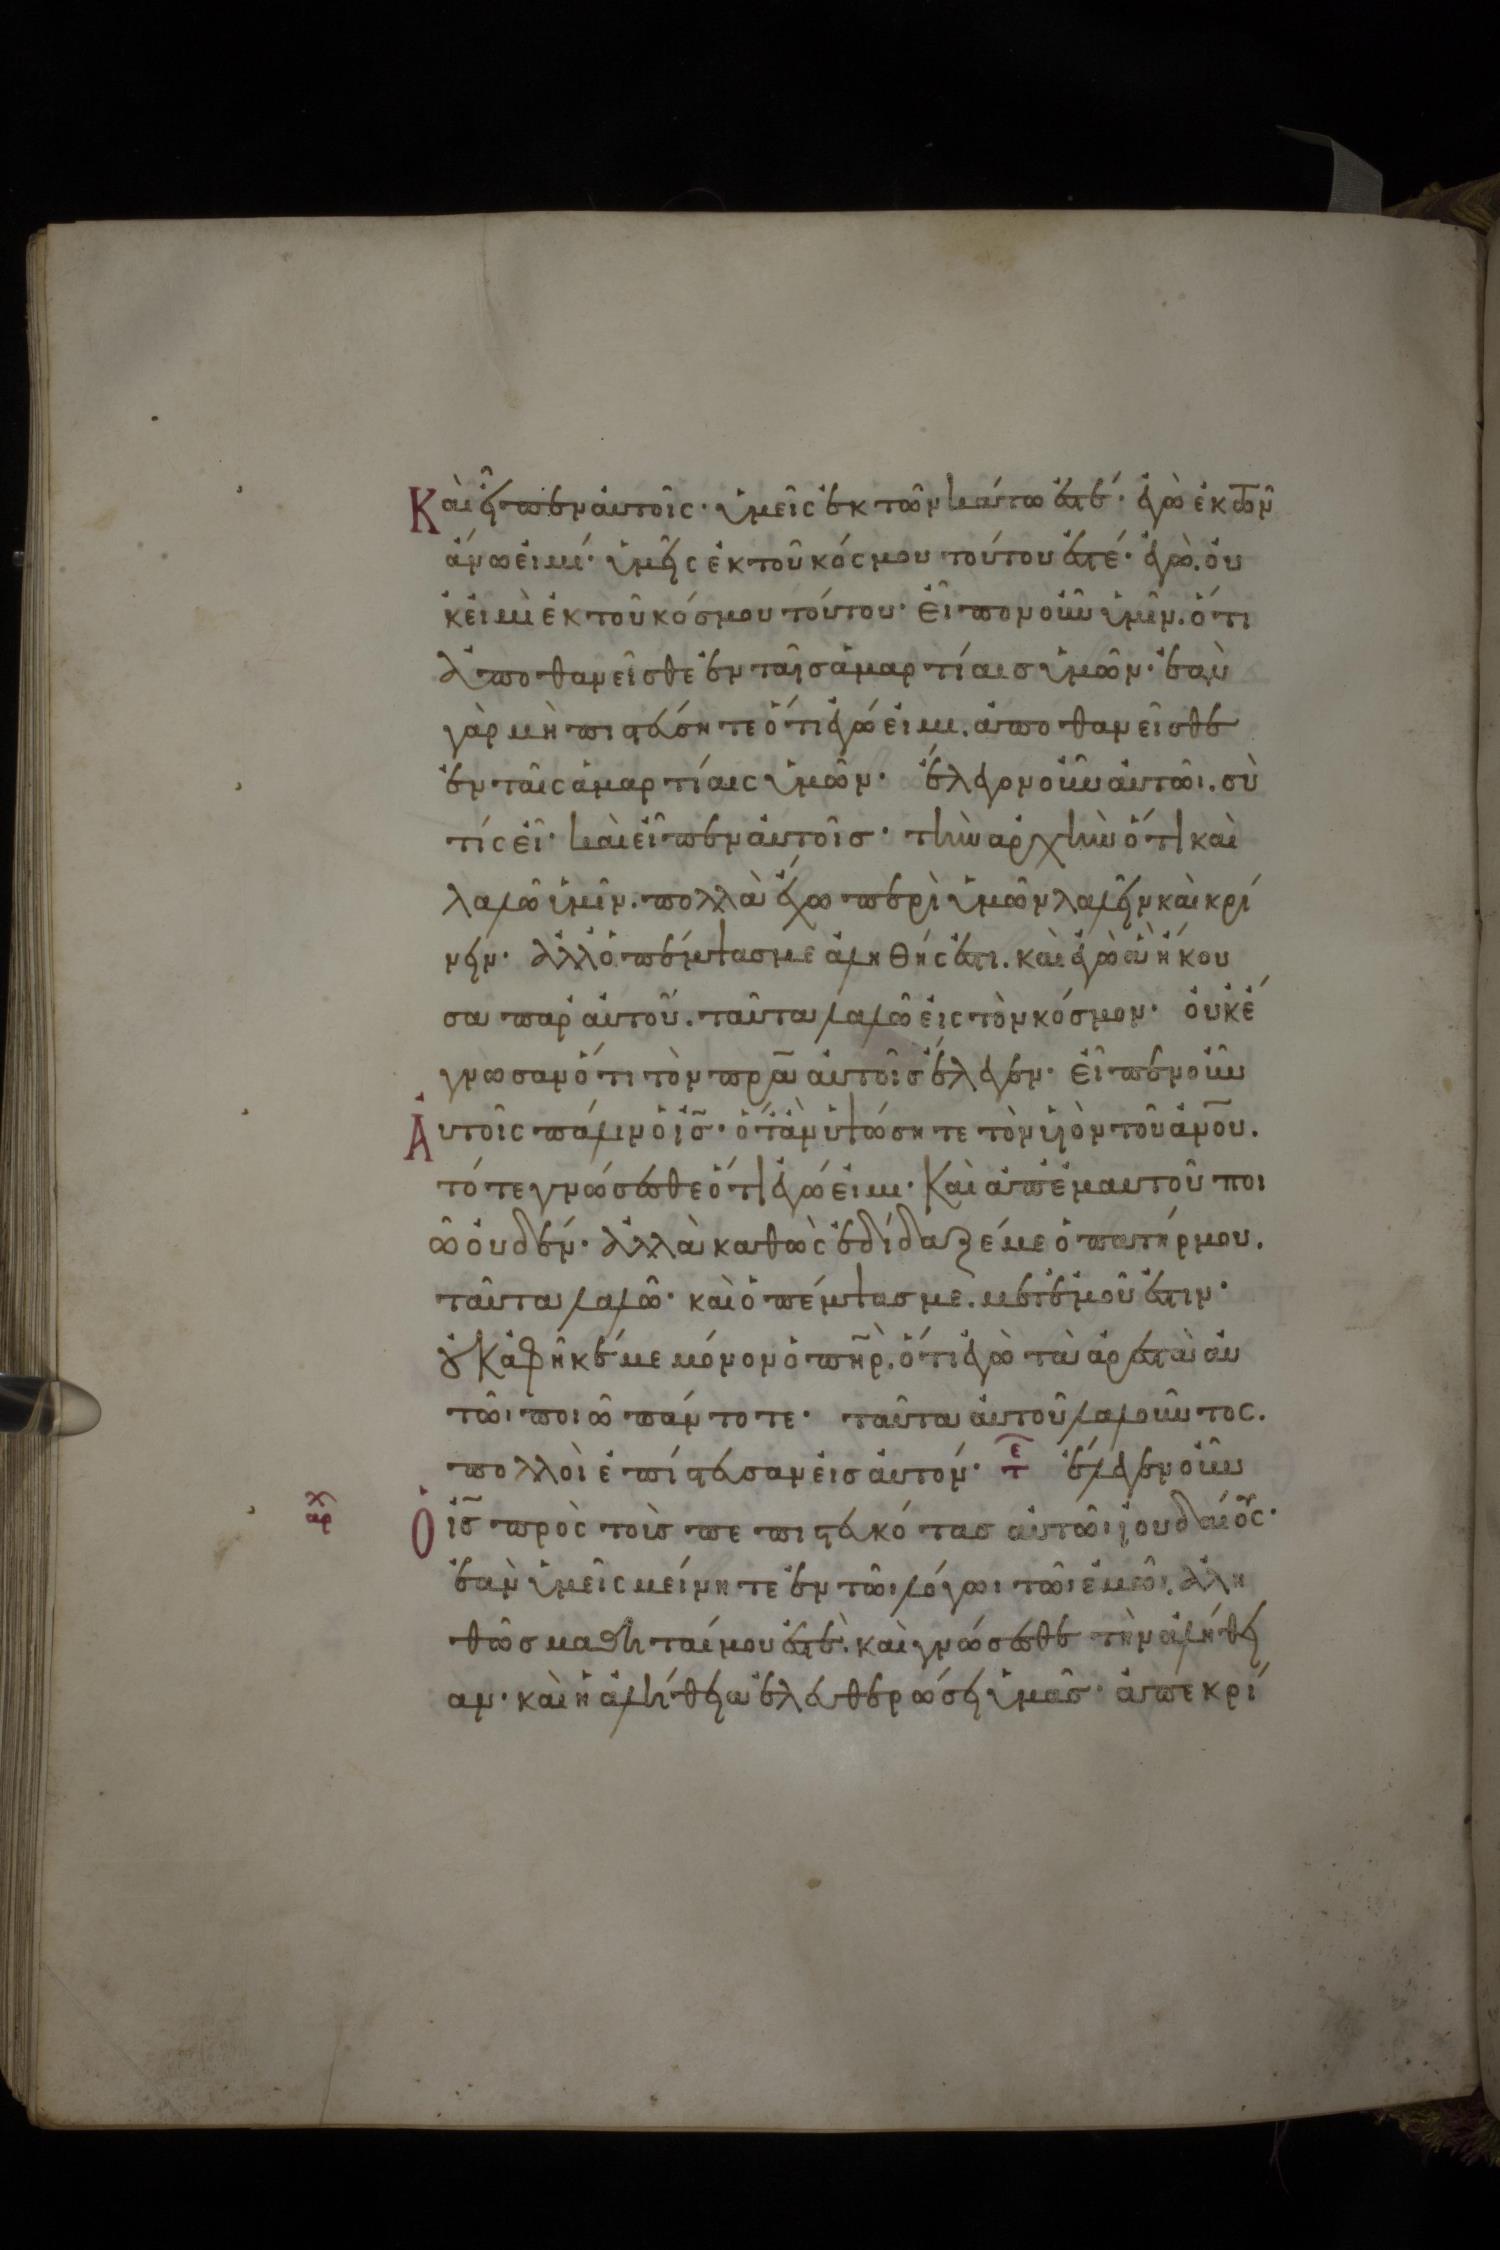 Καὶ εἶπεν αὐτοῖς· ὑμεῖς ἐκ τῶν κάτω ἐστέ· ἐγὼ ἐκ τῶν
ἄνω εἰμί· ὑμεῖς ἐκ τοῦ κόσμου τούτου ἐστέ· ἐγὼ. οὐ
κ εἰμὶ ἐκ τοῦ κόσμου τούτου· εἶπον οὖν ὑμῖν. ὅτι
ἀποθανεῖσθε ἐν ταῖς ἁμαρτίαις ὑμῶν· ἐὰν
γὰρ μὴ πιστεύσητε ὅτι ἐγώ εἰμι. ἀποθανεῖσθε
ἐν ταῖς ἁμαρτίαις ὑμῶν· ἔλεγον οὖν αὐτῶι. σὺ
τίς εἶ· καὶ εἶπεν αὐτοῖς· τὴν ἀρχὴν ὅτι καὶ
λαλῶ ὑμῖν. πολλὰ ἔχω περὶ ὑμῶν λαλεῖν καὶ κρί
νειν· ἀλλ ὁ πέμψας με ἀληθής ἐστι. καὶ ἐγὼ ἃ ἤκου
σα παρ αὐτοῦ. ταῦτα λαλῶ εἰς τὸν κόσμον· οὐκ ἔ
γνωσαν ὅτι τὸν πρα αὐτοῖς ἔλεγεν· εἶπεν οὖν
Αὐτοῖς πάλιν ὁ ις· ὅταν ὑψώσητε τὸν υἱὸν τοῦ ανου.
τότε γνώσεσθε ὅτι ἐγώ εἰμι· καὶ ἀπ ἐμαυτοῦ ποι
ῶ οὐδέν· ἀλλὰ καθὼς ἐδίδαξέ με ὁ πατήρ μου.
ταῦτα λαλῶ· καὶ ὁ πέμψας με. μετ ἐμοῦ ἐστιν·
οὐκ ἀφῆκέ με μόνον ὁ πηρ. ὅτι ἐγὼ τὰ ἀρεστὰ αὐ
τῶι ποιῶ πάντοτε· ταῦτα αὐτοῦ λαλοῦντος.
πολλοὶ ἐπίστευσαν εἰς αὐτόν· τε ἔλεγεν οὖν
αρχ Ὁ ις πρὸς τοὺς πεπιστευκότας αὐτῶι ἰουδαίους·
ἐὰν ὑμεῖς μείνητε ἐν τῶι λόγωι τῶι ἐμῶι. ἀλη
θῶς μαθηταί μου ἐστὲ. καὶ γνώσεσθε τὴν ἀλήθει
αν· καὶ ἡ ἀλήθεια ἐλευθερώσει ὑμᾶς· ἀπεκρί